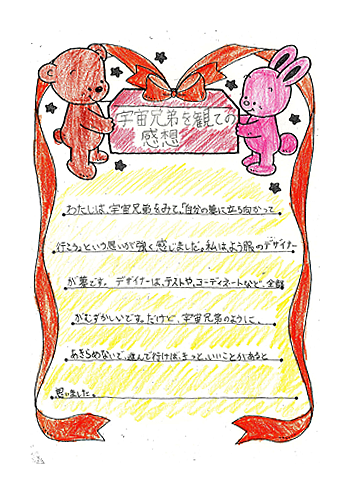 宇宙兄弟を観ての
感想
わたしは、宇宙兄弟をみて、「自分の夢に立ち向かって
行こう。」という思いが強く感じました。私は、よう服のデザイナー
が夢です。デザイナーは、テストや、コーディネートなど、全部
がむずかしいです。だけど、宇宙兄弟のように、
あきらめないで、進んで行けば、きっと、いいことがあると
思いました。